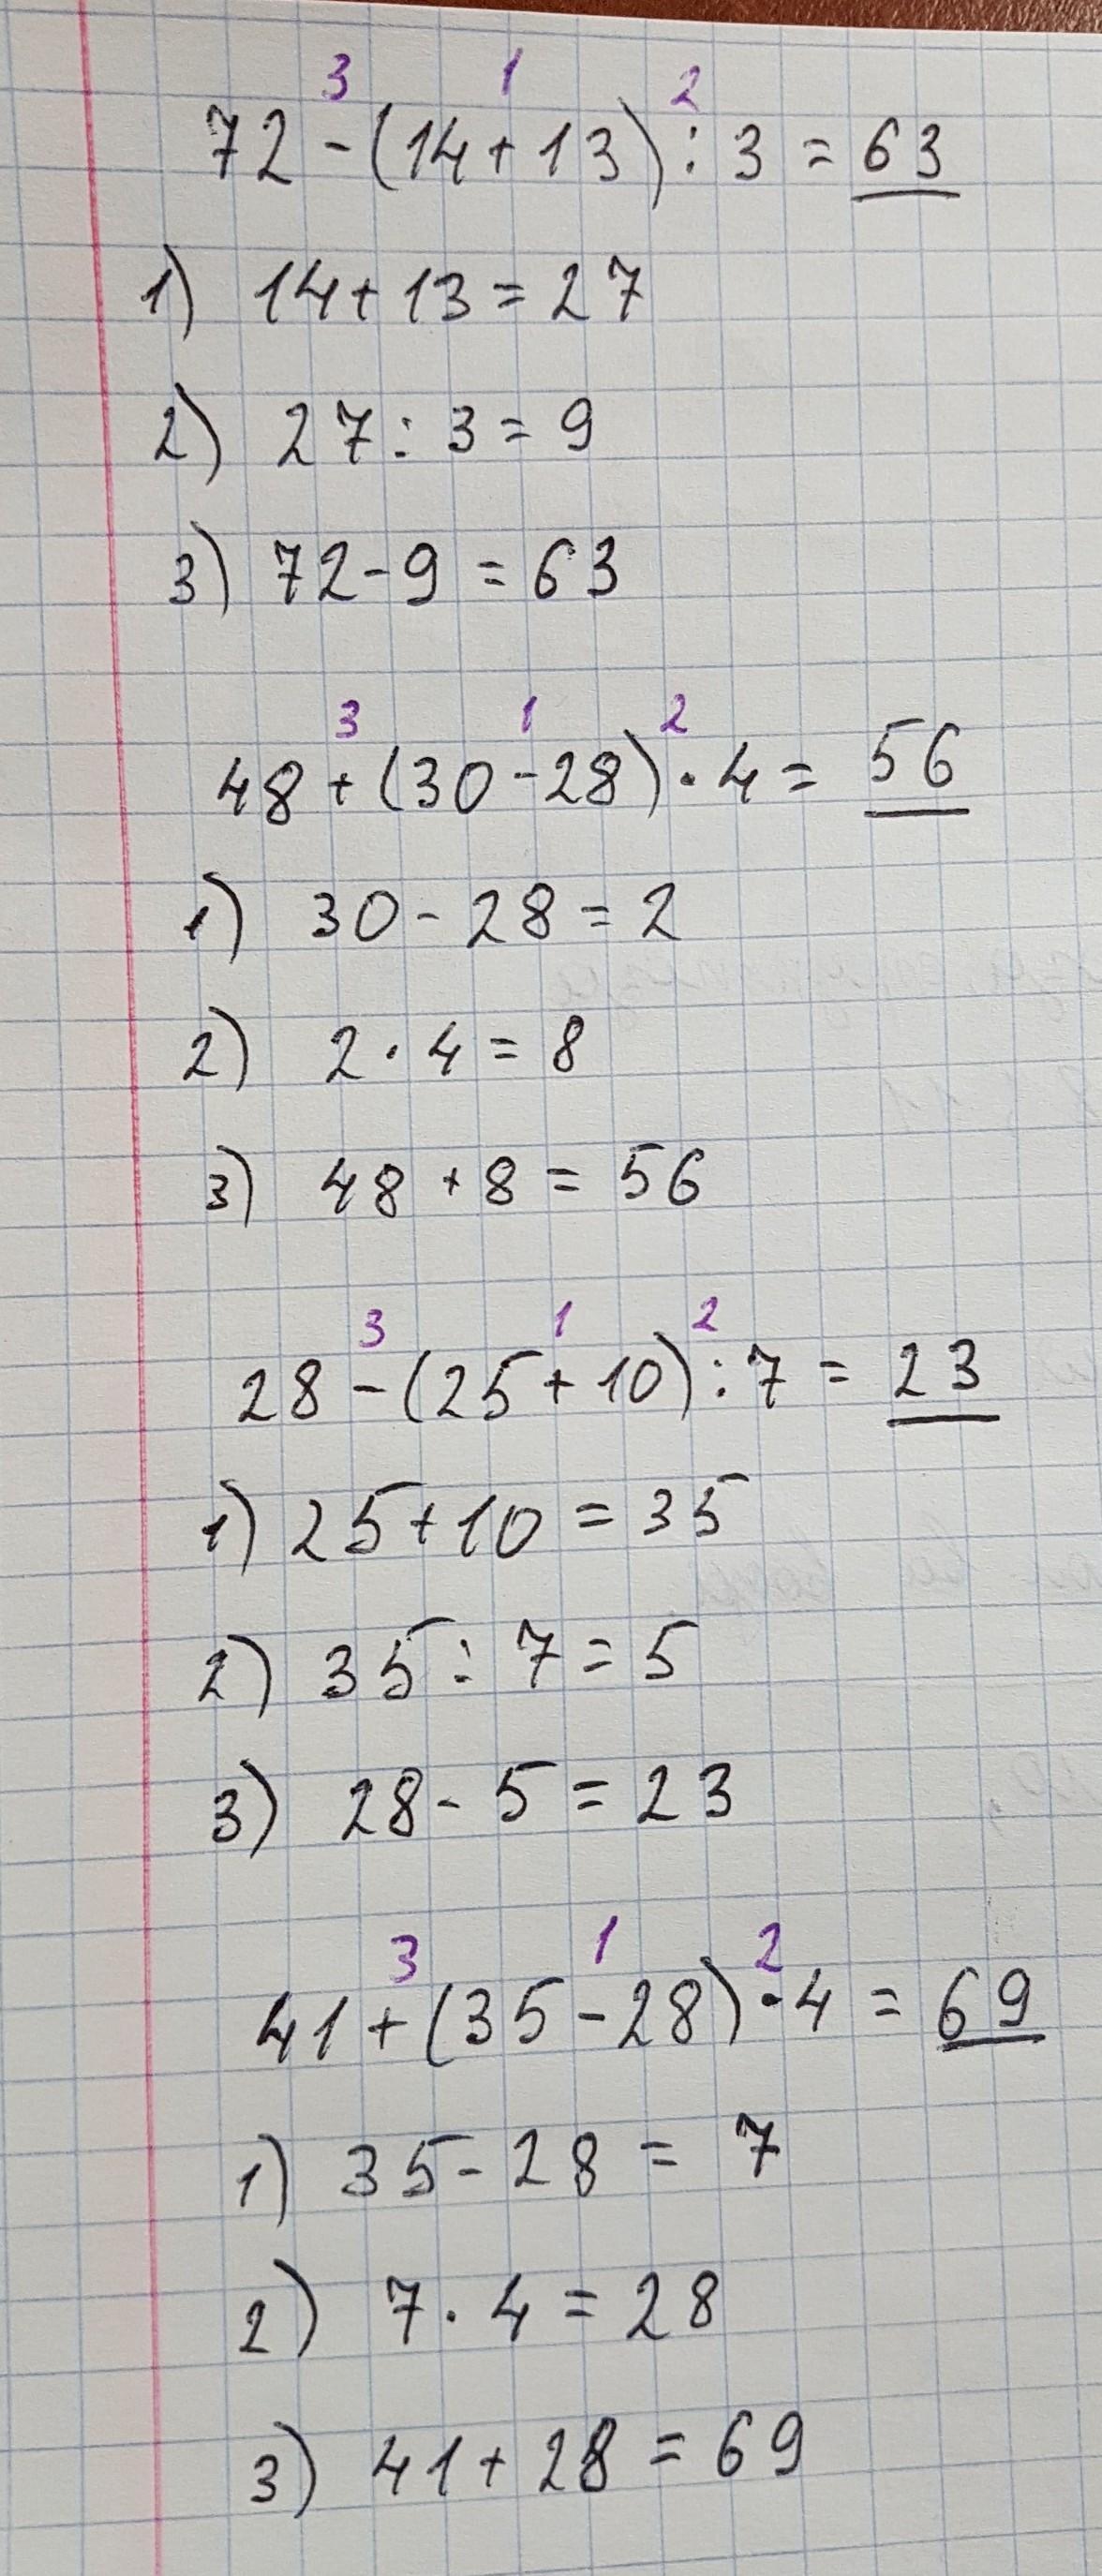 3 1 2
72 - (14 + 13) : 3 = 63
1) 14 + 13 = 27
2) 27 : 3 = 9
3) 72 - 9 = 63
3 1 2
48 + (30 - 28) · 4 = 56
1) 30 - 28 = 2
2) 2 · 4 = 8
3) 48 + 8 = 56
3 1 2
28 - (25 + 10) : 7 = 23
1) 25 + 10 = 35
2) 35 : 7 = 5
3) 28 - 5 = 23
3 1 2
41 + (35 - 28) · 4 = 69
1) 35 - 28 = 7
2) 7 · 4 = 28
3) 41 + 28 = 69